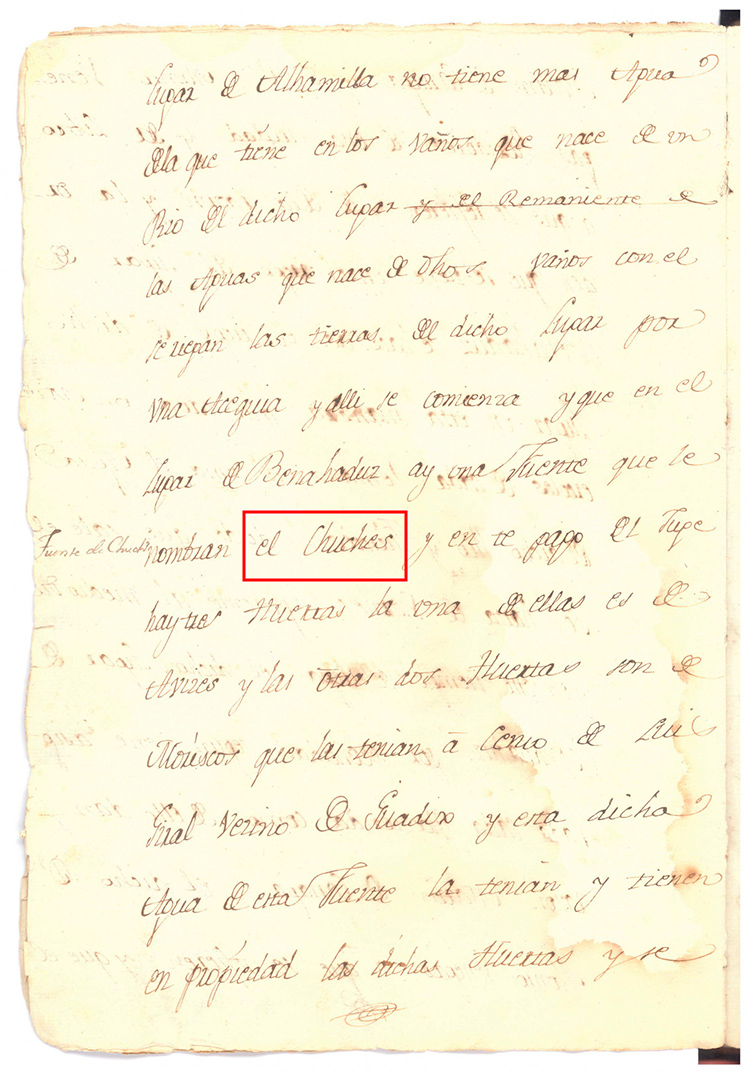 Lugar de Alhamilla no tiene mas Agua
dela que tiene en los vaños que nace de vn
Rio del dicho Lugar y el Remaniente de
las Aguas que nace de dhos vaños con el
se riegan las tierras del dicho Lugar por
vna Acequia y alli se comienza y que en el
Lugar de Benahaduz ay vna Fuente que le
Fuente de Chuche
nombran el Chuches y en te pago del
hay tres Huertas la vna de ellas es de
y las otras dos Huertas son de
Moriscos que las tenian à Censo de Luis
Vecino de Guadix y esta dicha
Agua de esta Fuente la tenian y tienen
en propiedad las dichas Huertas y se